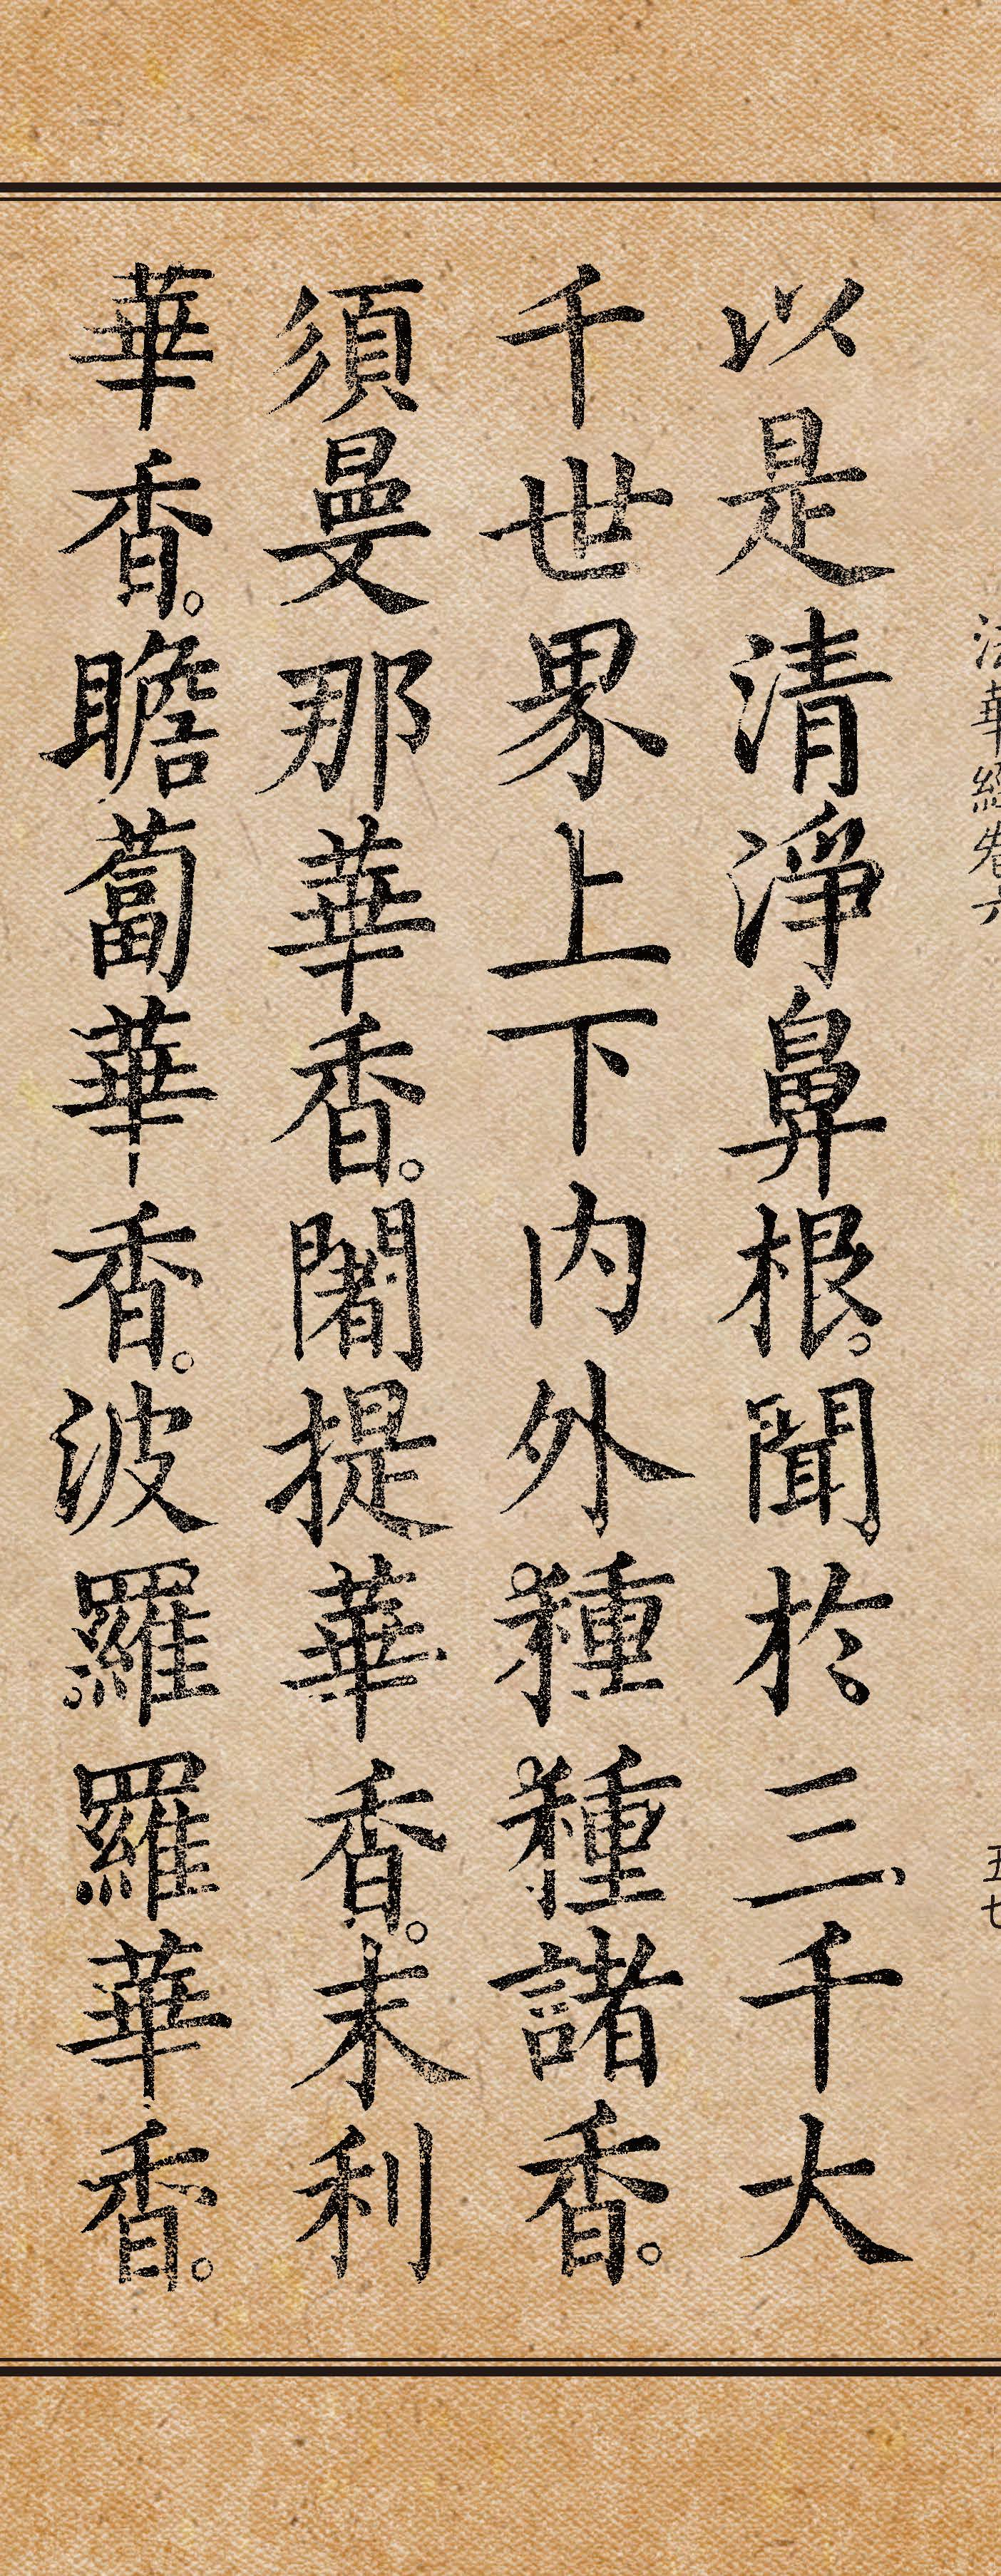 法華經卷六
五七
以是清淨鼻根。聞於三千大
千世界上下内外種種諸香。
須曼那華香。闍提華香。末利
華香。瞻蔔華香。波羅羅華香。